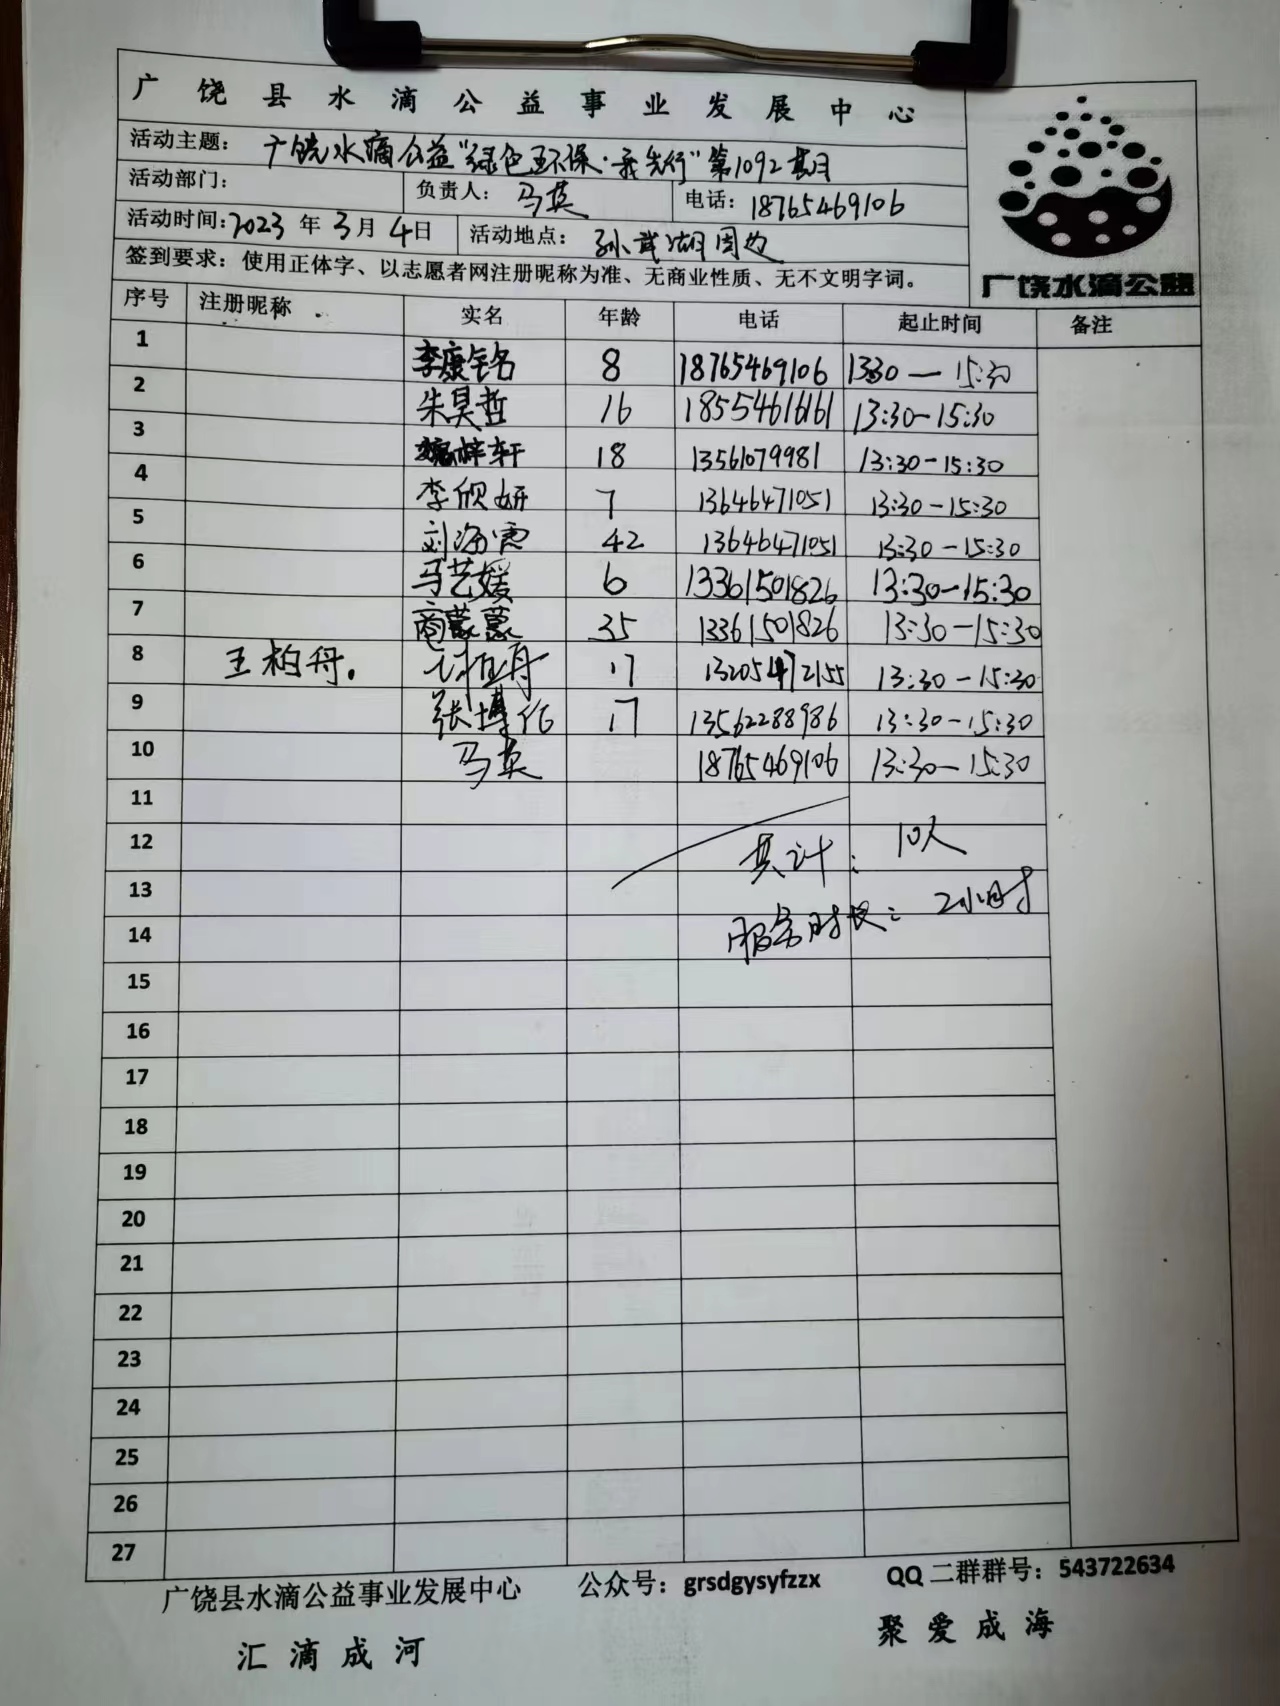 广饶县水滴公益事业发展中心
活动主题：广饶水滴公益"绿色环保·我先行"第1092期
活动部门： 负责人：马英 电话：18765469106
活动时间：2023年3月4日 活动地点：孙武湖周边
签到要求：使用正体字、以志愿者网注册昵称为准、无商业性质、无不文明字词。
广饶水滴公益
序号 注册昵称 实名 年龄 电话 起止时间 备注
1 李康铭 8 18765469106 1330—15:30
2 朱昊哲 16 18554616161 13:30-15:30
3 魏梓轩 18 13561079981 13:30-15:30
4 李欣妍 7 13646471051 13:30-15:30
5 刘海霞 42 13646471051 13:30-15:30
6 马艺媛 6 13361501826 13:30-15:30
7 商蒙蒙 35 13361501826 13:30-15:30
8 王柏舟. 17 13205472155 13:30-15:30
9 张博 17 13562288986 13:30-15:30
10 马英 18765469106 13:30-15:30
11
12 共计：10人
13
14 服务时长：2小时
15
16
17
18
19
20
21
22
23
24
25
26
27
广饶县水滴公益事业发展中心 公众号：grsdgysyfzzx QQ二群群号：543722634
汇滴成河 聚爱成海